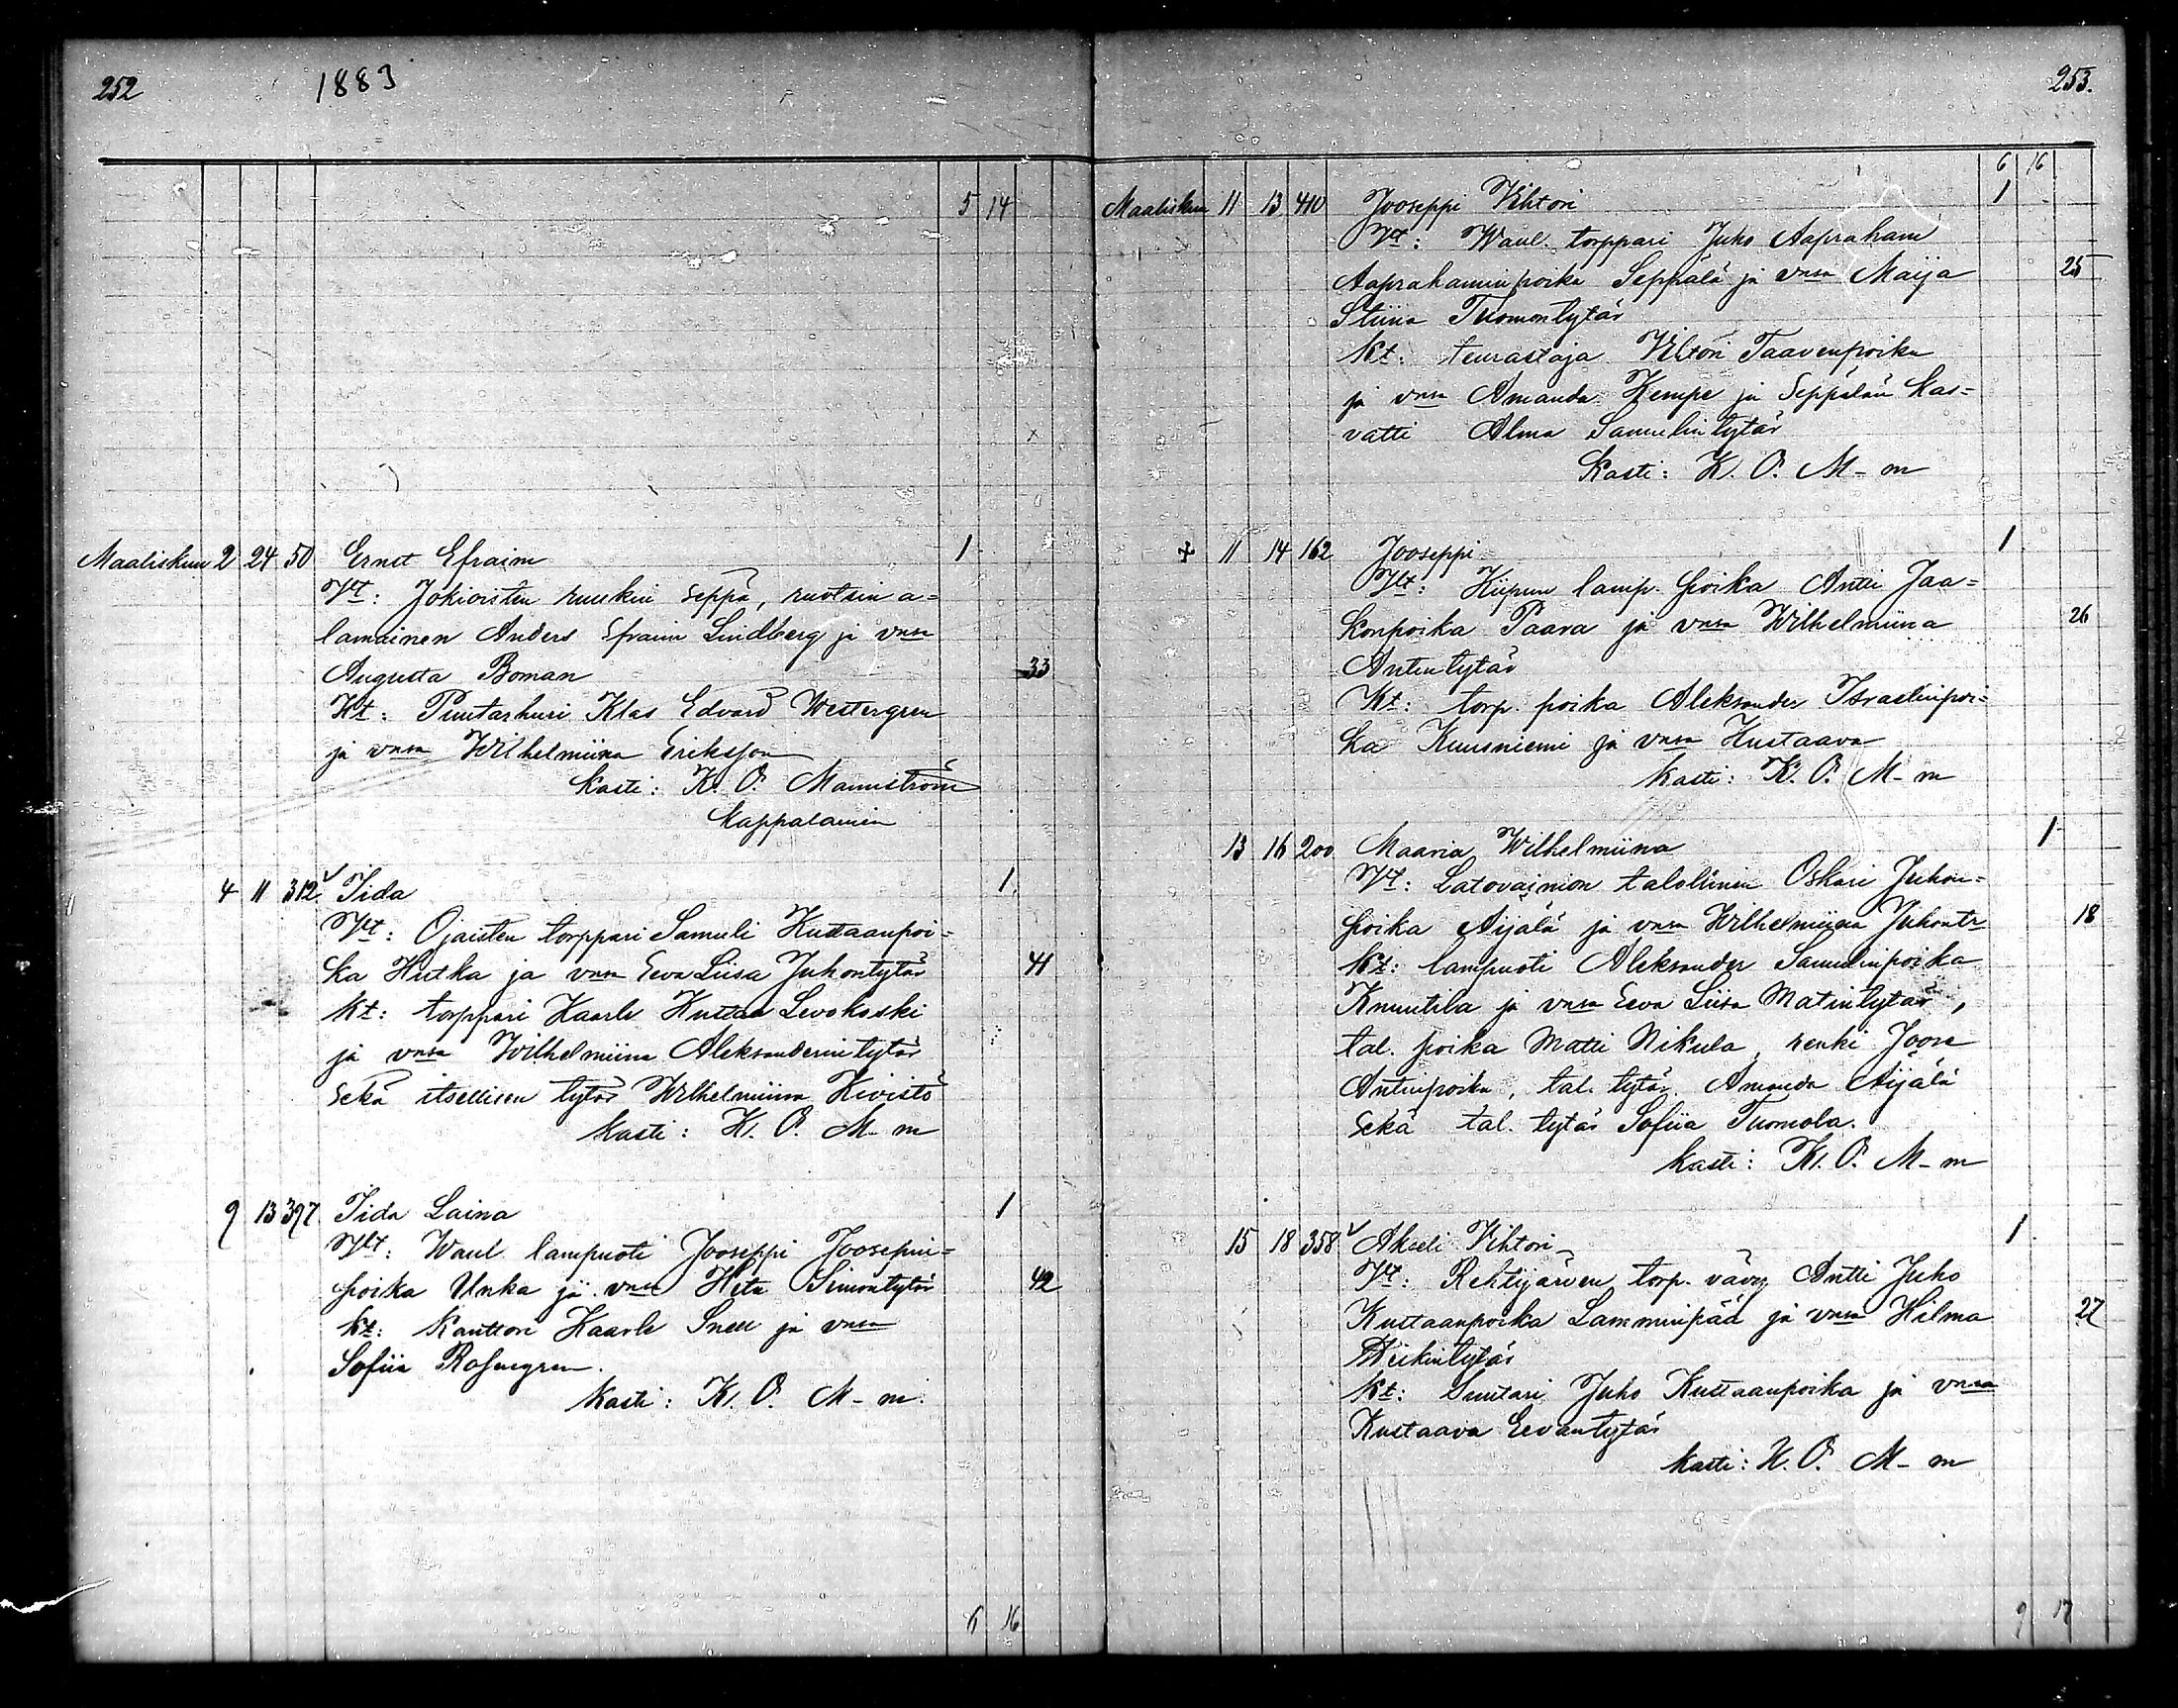 252 1883
5 14
Maaliskuu 2 24 50 Ernst Efraim 1
Vt: Jokioisten ruukin seppä, ruotsin a=
lamainen Anders Efraim Lindberg ja vmsa
Augusta Boman 33
Kt: Puutarhuri Klas Edvard Westergren
ja vmsa Wilhelmiina Eriksson
Kasti: K. O. Mannström
Kappalainen
4 11 312 Iida 1
Vt: Ojaisten torppari Samuli Kustaanpoi=
ka Hutka ja vmsa Eeva Liisa Juhontytär 41
Kt: torppari Kaarle Kustaa Levokoski
ja vmsa Wilhelmiina Aleksanderintytär
sekä itsellisen tytär Wilhelmiina Kivistö
Kasti: K. O. M-m
9 13 397 Iida Laina 1
Vt: Waul. lampuoti Jooseppi Joosepin=
poika Unka ja vmsa Heta Simontytär 42
Kt: Kanttori Kaarle Snell ja vmsa
Sofiia Rosengren.
Kasti: K. O. M-m.
6 16
253.
6 16
Maaliskuu 11 13 410 Jooseppi Vihtori 1
Vt: Waul. torppari Juho Aapraham
Aaprahaminpoika Seppälä ja vmsa Maija 25
Stiina Tuomontytär
Kt: teurastaja Vihtori Taavenpoika
ja vmsa Amanda Kempe ja Seppälän kas=
vatti Alma Samulintytär
Kasti: K. O. M-m
+ 11 14 162 Jooseppi 1
Vt: Kiipun lamp. poika Antti Jaa=
konpoika Paava ja vmsa Wilhelmiina 26
Antintytär
Kt: torp. poika Aleksander Israelinpoi=
ka Kuusniemi ja vmsa Kustaava
Kasti: K. O. M-m
13 16 200 Maaria Wilhelmiina 1
Vt: Latovainion talollinen Oskari Juhon=
poika Äijälä ja vmsa Wilhelmiina Juhontr 18
Kt: lampuoti Aleksander Samulinpoika
Knuutila ja vmsa Eeva Liisa Matintytär,
tal. poika Matti Nikula, renki Joose
Antinpoika, tal. tytär Amanda Äijälä
sekä tal. tytär Sofiia Tuomola.
Kasti: K. O. M-m
15 18 358 Akseli Vihtori 1
Vt: Rehtijärven torp. vävy Antti Juho
Kustaanpoika Lamminpää ja vmsa Hilma 27
Heikintytär
Kt: Suutari Juho Kustaanpoika ja vmsa
Kustaava Eevantytär
Kasti: K. O. M-m
9 17